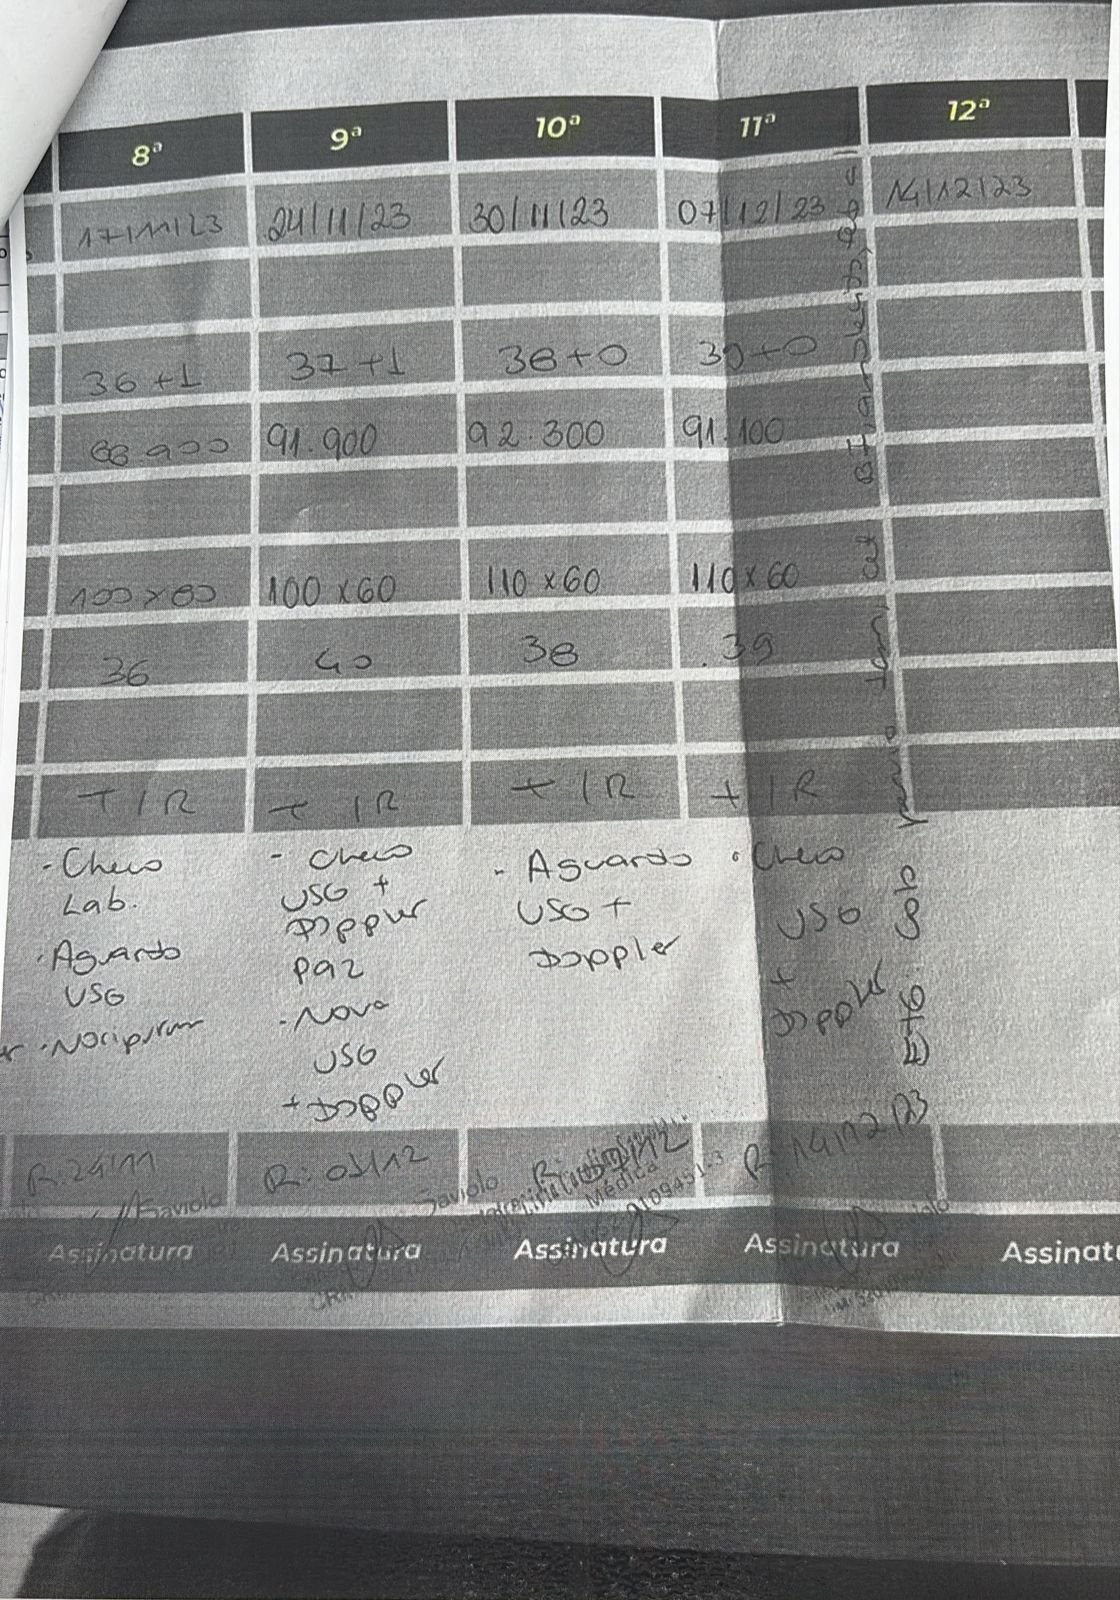 8ª 9ª 10ª 11ª 12ª
17/11/23 24/11/23 30/11/23 07/12/23 14/12/23
36+1 37+1 38+0 39+0
88.900 91.900 92.300 91.100
100x60 100x60 110x60 110x60
36 40 38 39
+ / R + / R + / R + / R
- Checo
Lab.
· Aguardo
USG
· Noripurum
- Checo
USG +
Doppler
paz
- Nova
USG
+ Doppler
- Aguardo
USG +
Doppler
· Checo
USG
+
Doppler
R: 24/11 R: R: R: 14/12/23
Saviolo Saviolo
Médica
109451-3
Assinatura Assinatura Assinatura Assinatura Assinat